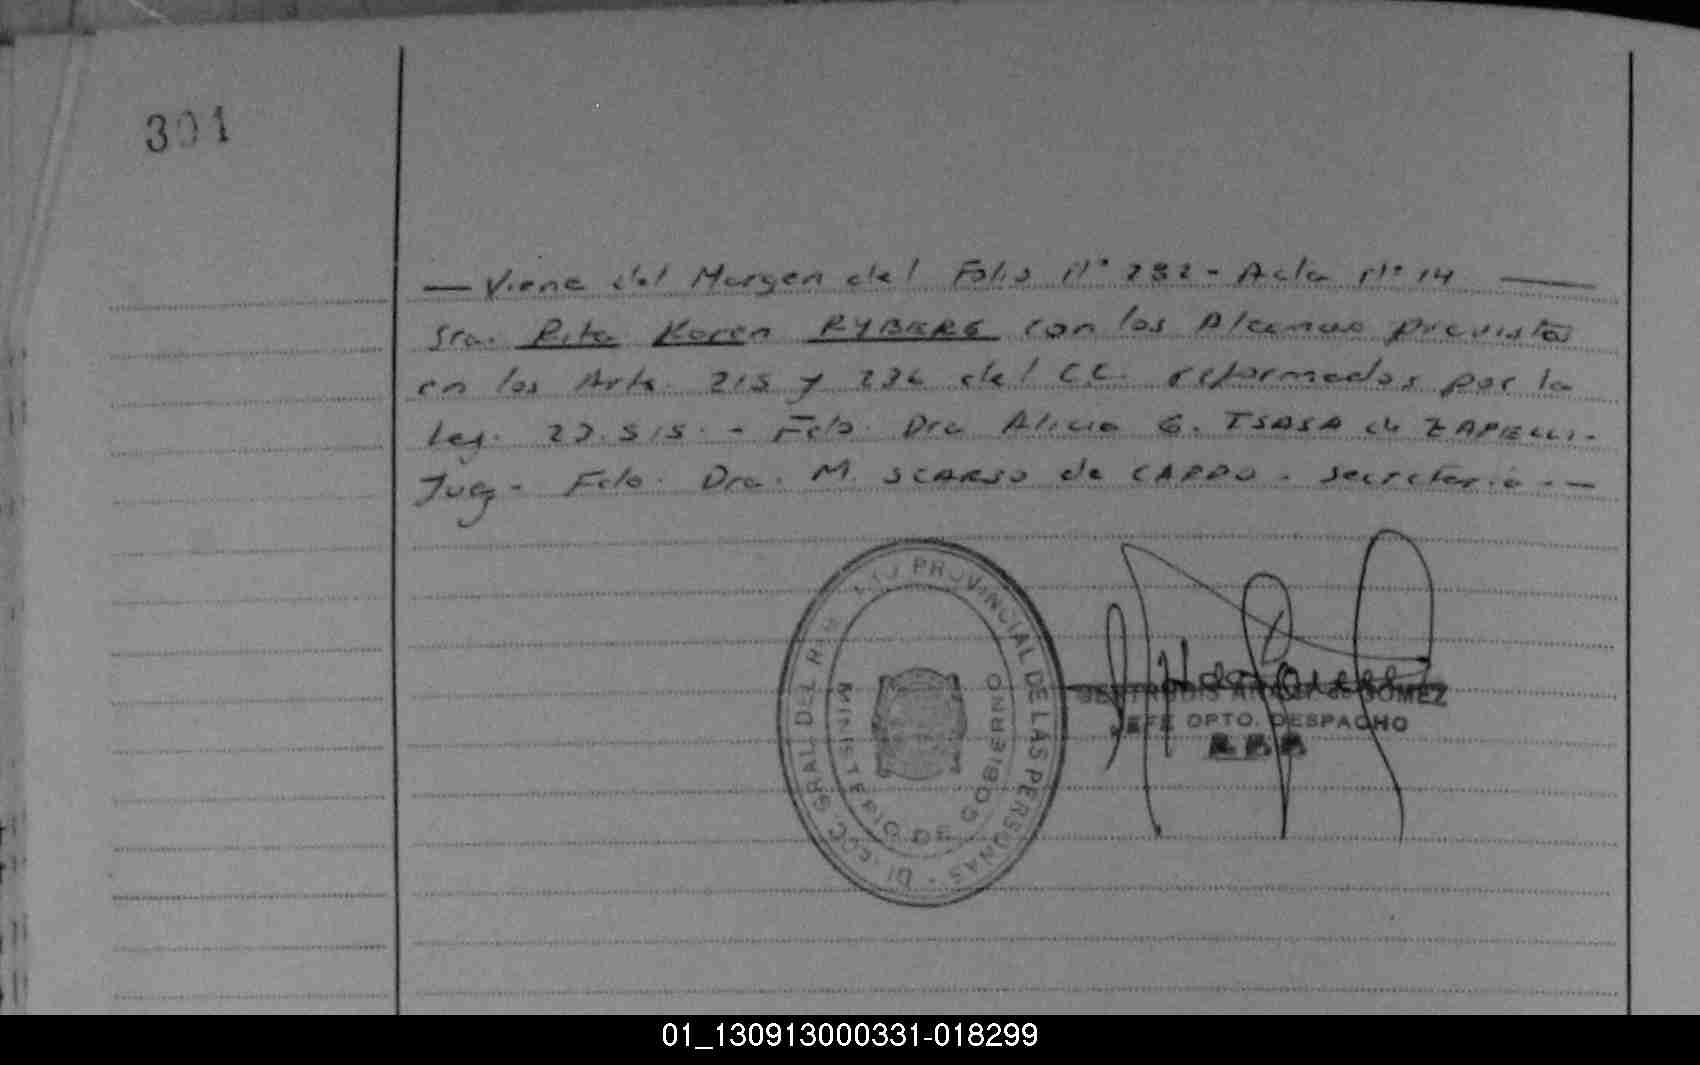 301
— Viene del Margen del Folio Nº 282 - Acta Nº 14 —
Sra. Rita Karen RYBERG con los Alcances previsto
en los Arts. 215 y 236 del C.C. reformados por la
Ley. 23.515. - Fdo. Dra Alicia G. TSASA de ZAPELLI.-
Juez - Fdo. Dra. M. SCARSO de CAPPO - Secretaria - —
PROVINCIAL DE LAS PERSONAS - DIRECC. GRAL. DEL
MINISTERIO DE GOBIERNO
GOMEZ
JEFE DPTO. DESPACHO
01_130913000331-018299